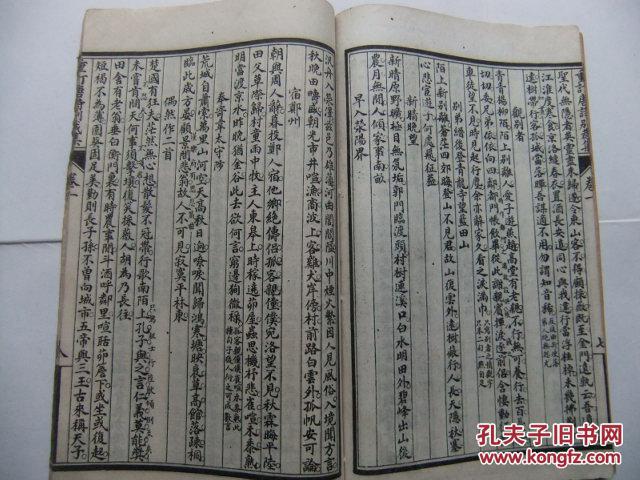 重訂唐詩別裁集 卷一 七
聖代無隱者英靈盡來歸遂令東山客不得顧採薇既至金門遠孰云吾道非
江淮度寒食京洛縫春衣置酒長安道同心與我違行當浮桂棹未幾拂荊扉
遠樹帶行客孤城當落暉吾謀適不用勿謂知音稀
觀別者
青青楊柳陌陌上別離人愛子遊燕趙高堂有老親不行無可養行去百憂新
切切委兄弟依依向四鄰都門帳飲畢從此謝親賓揮淚逐前侶含悽動征輪
車徒望不見時見起行塵余亦辭家久看之淚滿巾
別弟縉後登青龍寺望藍田山
陌上新別離蒼茫四郊晦登山不見君故山復雲外遠樹蔽行人長天隱秋塞
心悲宦遊子何處飛征蓋
新晴晚望
新晴原野曠極目無氛垢郭門臨渡頭村樹連溪口白水明田外碧峰出山後
農月無閒人傾家事南畝
早入滎陽界
汎舟入滎澤茲邑乃雄藩河曲閭閻隘川中煙火繁因人見風俗入境聞方言
秋晚田疇盛朝光市井喧漁商波上客雞犬岸傍村前路白雲外孤帆安可論
宿鄭州
朝與周人辭暮投鄭人宿他鄉絕儔侶孤客親僮僕宛洛望不見秋霖晦平陸
田父草際歸村童雨中牧主人東皋上時稼遶茆屋蟲思機杼悲雀喧禾黍熟
明當渡京水昨晚猶金谷此去欲何言窮邊徇微祿
奉寄韋太守陟
荒城自蕭索萬里山河空天高秋日迥嘹唳聞歸鴻寒塘映衰草高館落疏桐
臨此歲方晏顧景問悲翁故人不可見寂寞平林東
偶然作二首
楚國有狂夫茫然無心想散髮不冠帶行歌南陌上孔子與之言仁義莫能獎
未嘗肯問天何事須擊壤復笑采薇人胡為乃長往
田舍有老翁垂白衡門裏有時農事閒斗酒呼鄰里喧聒茆簷下或坐或復起
短褐不為薄園葵固足美動則長子孫不曾向城市五帝與三王古來稱天子
重訂唐詩別裁集 卷一 八
孔夫子旧书网
www.kongfz.com